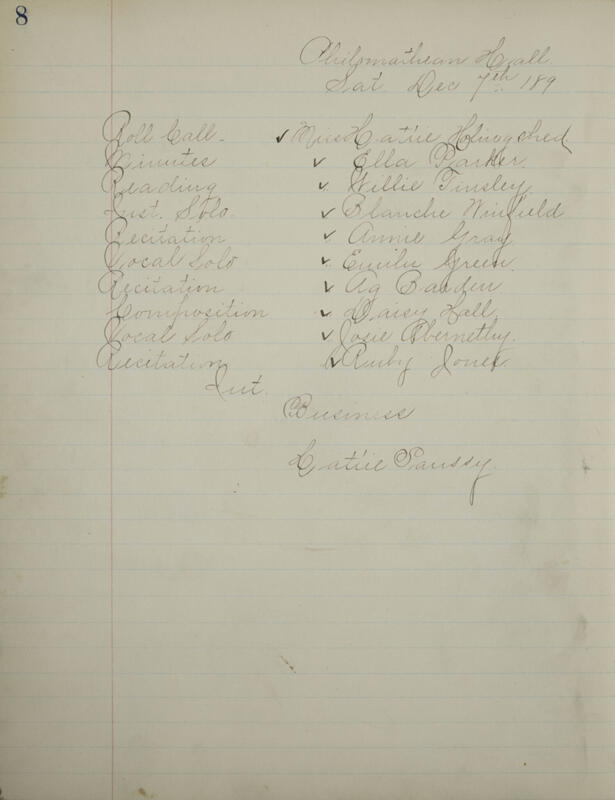 8
Philomathean Hall
Sat. Dec 7th 189
Roll Call - ✓ Miss Katie Hlingshed
Minutes ✓ Ella Parker
Reading ✓ Willie Tinsley
Inst. Solo. ✓ Blanche Winfield
Recitation ✓ Annie Gray
Vocal Solo ✓ Emilu Green.
Recitation ✓ Ag Barden
Composition ✓ Daisy Hall
Vocal Solo ✓ Josie Abernethy.
Recitation ✓ Ruby Jones
Int.
Business
Katie